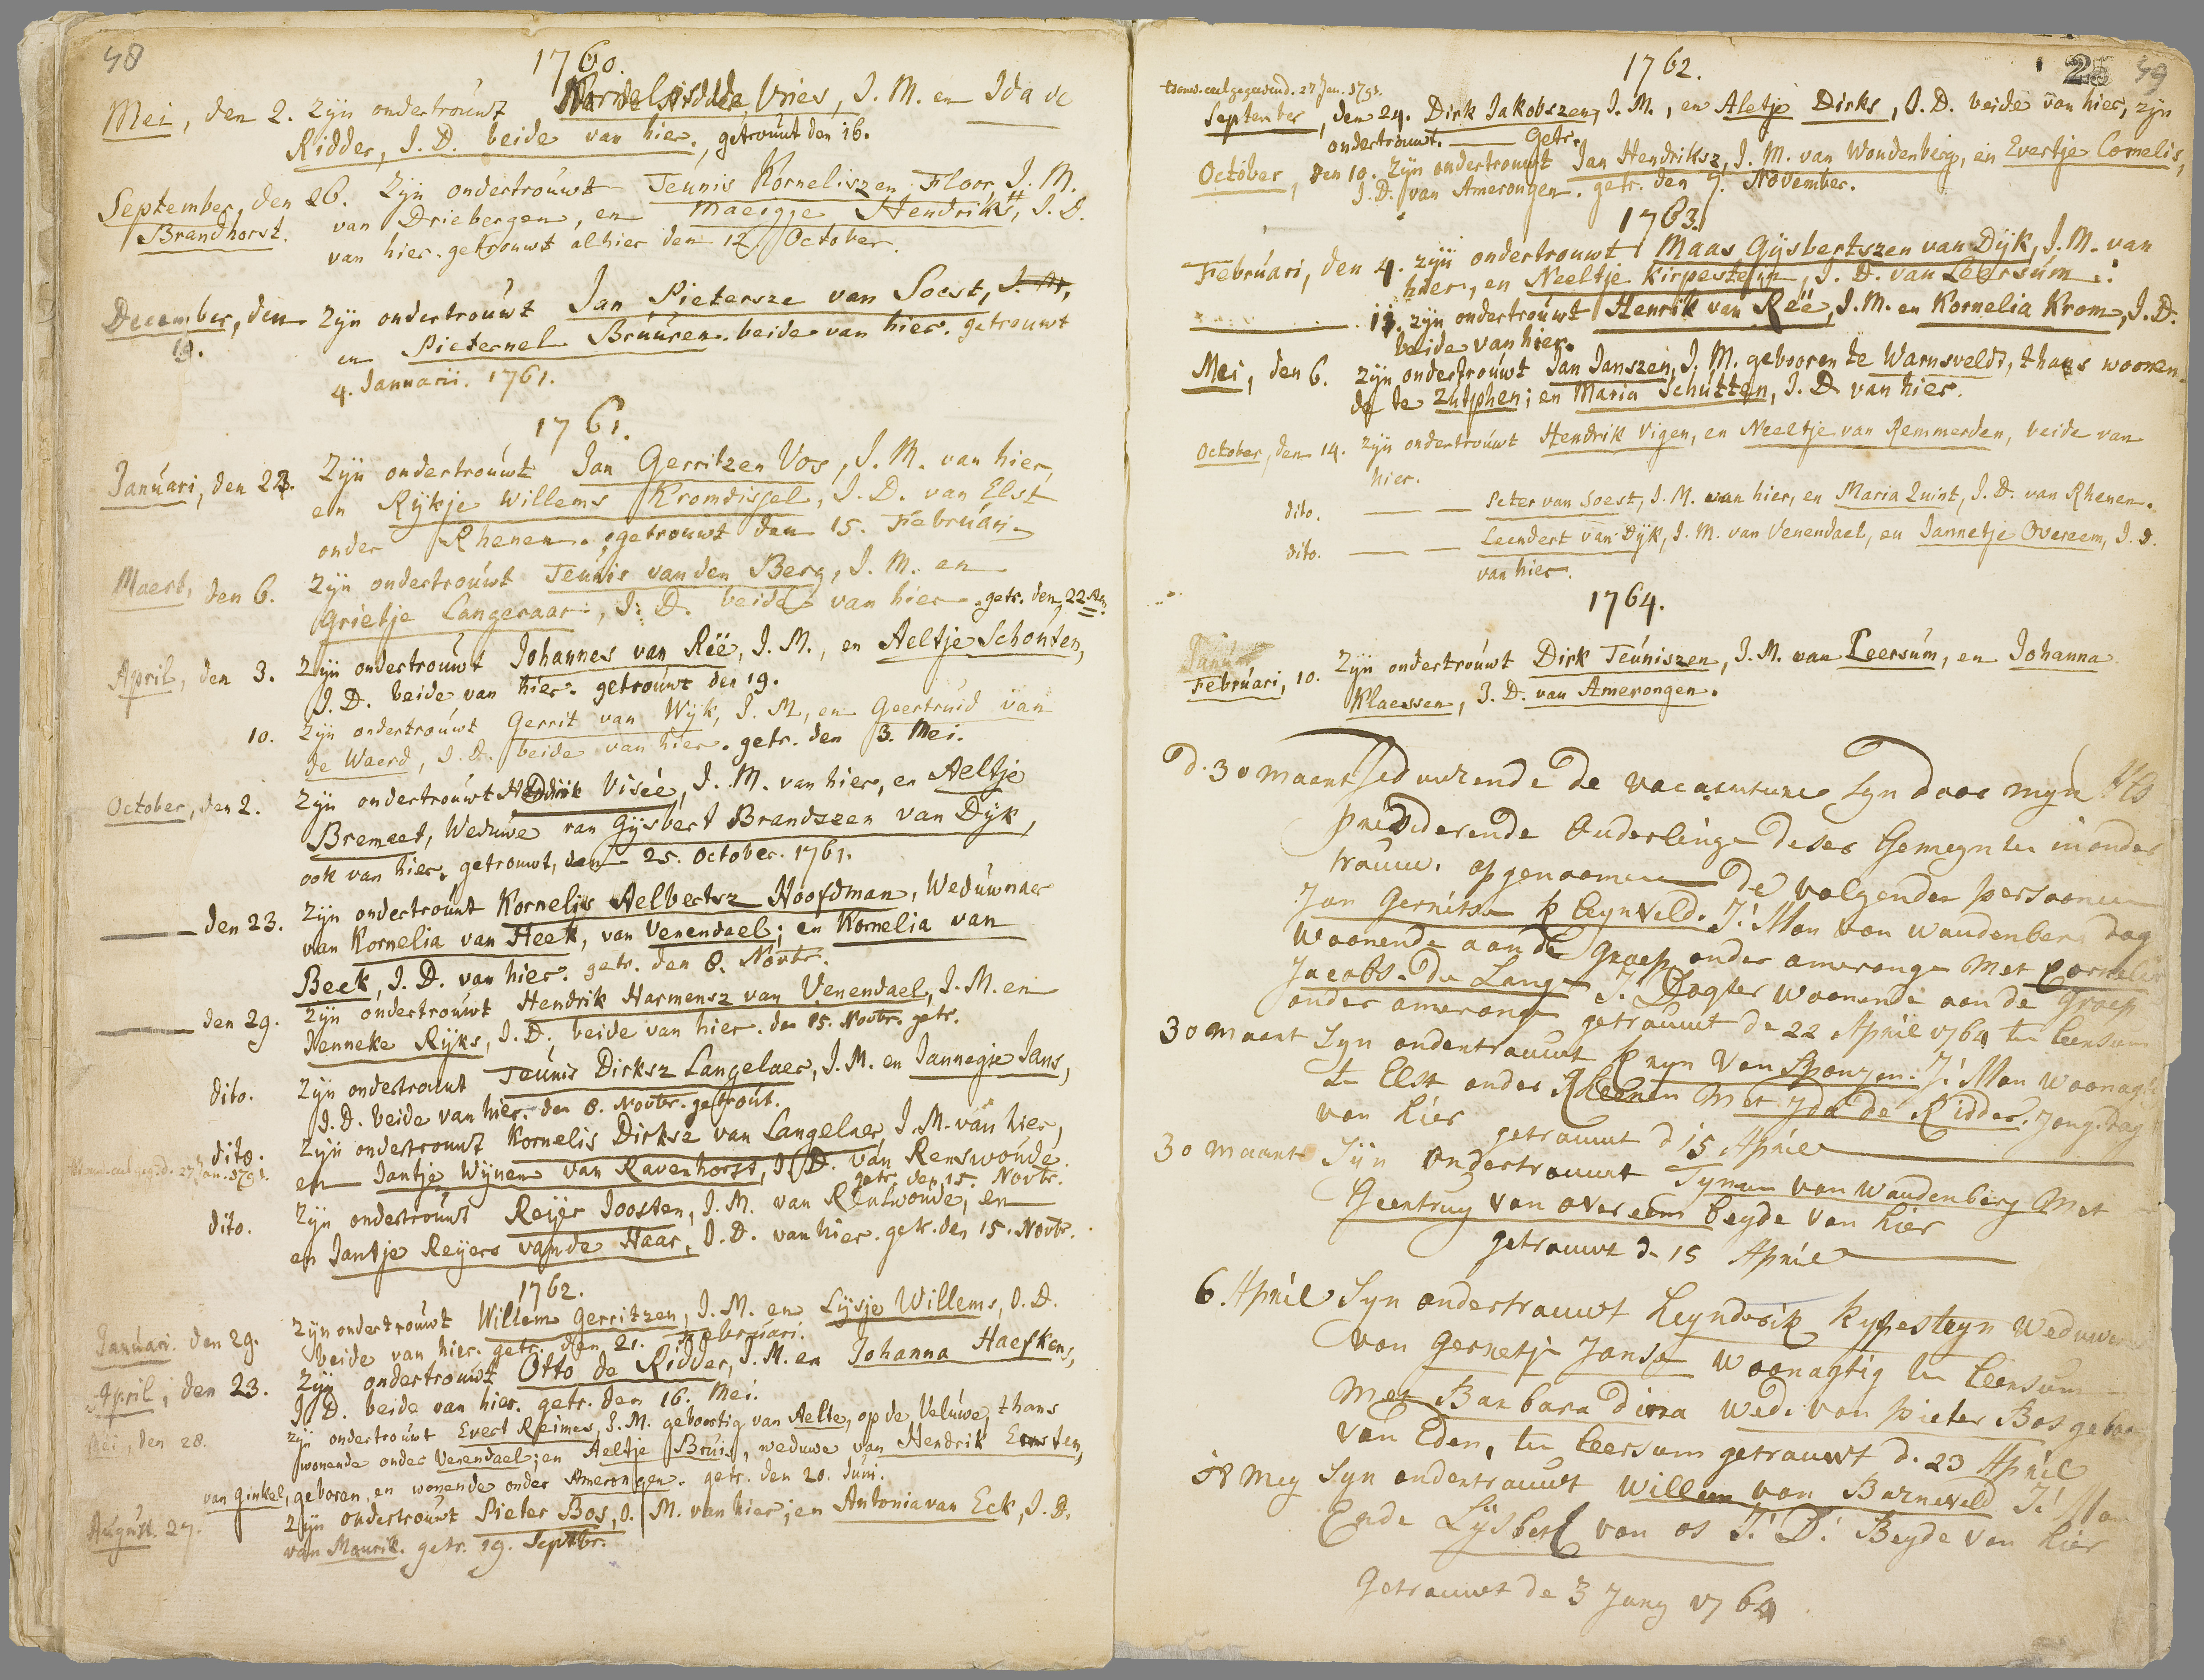 48
1760.
Mei, den 2. Zyn ondertrouwt de Vries, J. M. en Ida de
Ridder, J. D. beide van hier, getrouwt den 16.
September, den 26. Zyn ondertrouwt Teunis Korneliszen Floor, J. M.
Brandhorst. van Driebergen, en Maeigje Hendriks, J. D.
van hier. getrouwt alhier den 12 October.
December, den Zyn ondertrouwt Jan Pietersze van Soest, J. M,
19. en Pieternel Bruuren. beide van hier. getrouwt
4. Januarii. 1761.
1761.
Januari, den 23. Zyn ondertrouwt Jan Gerritzen Vos, J. M. van hier,
en Rykje Willems Kromdissel, J. D. van Elst
onder Rhenen. getrouwt den 15. Februari.
Maert, den 6. Zyn ondertrouwt Teunis van den Berg, J. M. en
Grietje Langeraar, J. D. beide van hier. getr. den 22
April, den 3. Zyn ondertrouwt Johannes van Reë, J. M., en Aeltje Schouten,
J. D. beide van hier. getrouwt den 19.
10. Zyn ondertrouwt Gerrit van Wyk, J. M, en Geertruid van
de Waerd, J. D. beide van hier. getr. den 3. Mei.
October, den 2. Zyn ondertrouwt Visée, J. M. van hier, en Aeltje
Bremeet, Weduwe van Gysbert Brandszen van Dyk,
ook van hier. getrouwt, den 25. October. 1761.
den 23. Zyn ondertrouwt Kornelis Aelbertsz Hoofdman, Weduwnaer
van Kornelia van Heek, van Venendael; en Kornelia van
Beek, J. D. van hier. getr. den 8. Novbr.
den 29. Zyn ondertrouwt Hendrik Harmensz van Venendael, J. M. en
Nenneke Ryks, J. D. beide van hier. den 15. Novbr. getr.
dito. Zyn ondertrouwt Teunis Dirksz Langelaer, J. M. en Jannegje Jans,
J. D. beide van hier. den 8. Novbr. getrout.
dito. Zyn ondertrouwt Kornelis Dirksz van Langelaer J. M. van hier,
27 Jan. 1791. en Jantje Wynen van Ravenhorst, J. D. van Renswoude.
getr. den 15. Novbr.
dito. Zyn ondertrouwt Reijer Joosten, J. M. van Renswoude, en
en Jantje Reijers van de Haar, J. D. van hier. getr. den 15. Novbr.
1762.
Januari. den 29. Zyn ondertrouwt Willem Gerritzen, J. M. en Lysje Willems, J. D.
beide van hier. getr. den 21. Februari.
April, den 23. Zyn ondertrouwt Otto de Ridder, J. M. en Johanna Haefkens,
J. D. beide van hier. getr. den 16. Mei.
Mei, den 28. Zyn ondertrouwt Evert Reimes, J. M. geboortig van Aelte, op de Veluwe, thans
wonende onder Venendael; en Aeltje Bruis, weduwe van Hendrik Ernsten,
van Ginkel, geboren, en wonende onder Amerongen. getr. den 20. Juni.
August. 27. Zyn ondertrouwt Pieter Bos, J. M. van hier; en Antonia van Eck, J. D.
van Maurik. getr. 19. Septbr.
25 49
1762.
27 Jan. 1791.
September, den 24. Dirk Jakobszen, J. M., en Aletje Dirks, J. D. beide van hier, zyn
ondertrouwt. Getr.
October, den 10. Zyn ondertrouwt Jan Hendriksz, J. M. van Woudenberg, en Evertje Cornelis,
J. D. van Amerongen. getr. den 7. November.
1763.
Februari, den 4. zyn ondertrouwt Maas Gysbertszen van Dyk, J. M. van
hier, en Neeltje Kirpesteyn, J. D. van Leersum.
18. zyn ondertrouwt Henrik van Reë, J. M. en Kornelia Krom, J. D.
beide van hier.
Mei, den 6. Zyn ondertrouwt Jan Janszen, J. M. gebooren te Warnsveldt, thans woonen-
de te Zutphen; en Maria Schutten, J. D. van hier.
October, den 14. zyn ondertrouwt Hendrik Vigen, en Neeltje van Remmerden, beide van
hier.
dito. Peter van Soest, J. M. van hier, en Maria Quint, J. D. van Rhenen.
dito. Leendert van Dyk, J. M. van Venendael, en Jannetje Overeem, J. D.
van hier.
1764.
Februari, 10. Zyn ondertrouwt Dirk Teuniszen, J. M. van Leersum, en Johanna
Klaessen, J. D. van Amerongen.
d. 30 maart seduurende de vacatuture Syn door myn
presiderende Ouderlinge deser Gemeynte in onder
trouw. opgenoomen De volgende persoonen
Jan Gerritse Kleynveld. J: Man van Woudenberg dog
Woonende aan de Groep onder amerongen Met
Jacobs de Lang J. Dogter woonende aan de Groep
onder amerongen getrouwt de 22 April 1764 te Leersum
30 maart Syn ondertrouwt Kryn van Spanzen: J: Man Woonagt
te Elst onder Rheenen Met Yda de Ridder. Jong. Dog
van hier getrouwt d 15 April
30 maart Syn Ondertrouwt Tyman van Woudenberg Met
Geertruy van overeem beyde van hier
getrouwt d. 15 April
6. April Syn ondertrouwt Heyndrik Kypesteyn Weduwe
van Gerretje Janse Woonagtig te Leersum
Met Barbara Dirra Wed: van Pieter Bos geboo
van Eden, te Leersum getrouwt d. 23 April
18 Mey Syn ondertrouwt Willem van Barneveld J: Man
Ende Lijsbert van os J: D: Beyde van hier
Getrouwt de 3 Juny 1764